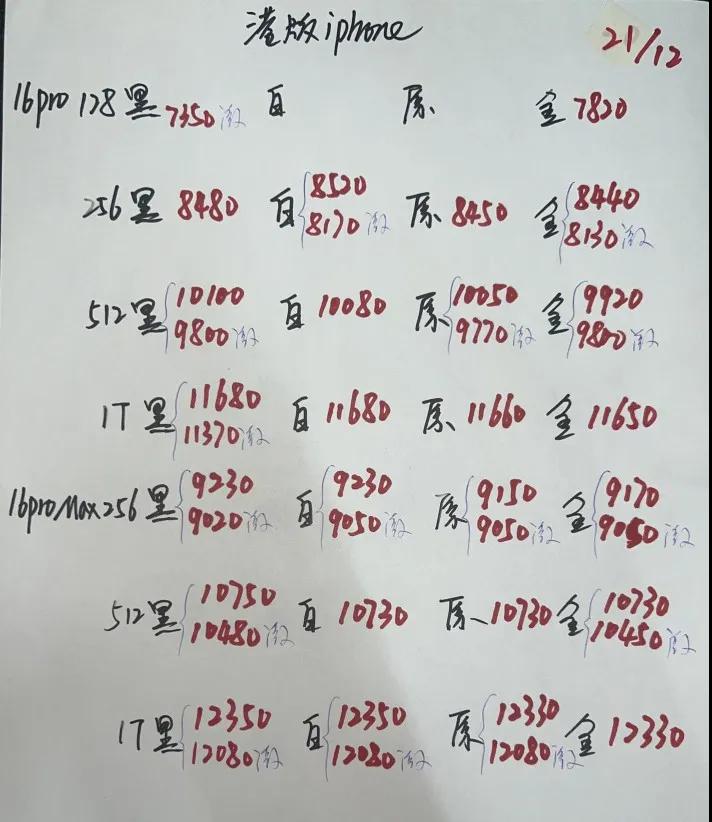 港版iphone
21/12
16pro 128 黑 7350 激 白 原 金 7820
256 黑 8480 白 8520 原 8450 金 8440
8170 激 8130 激
512 黑 10100 白 10080 原 10050 金 9920
9800 激 9770 激 9800 激
1T 黑 11680 白 11680 原 11660 金 11650
11370 激
16proMax 256 黑 9230 白 9230 原 9150 金 9170
9020 激 9050 激 9050 激 9050 激
512 黑 10750 白 10730 原 10730 金 10730
10480 激 10450 激
1T 黑 12350 白 12350 原 12330 金 12330
12080 激 12080 激 12080 激